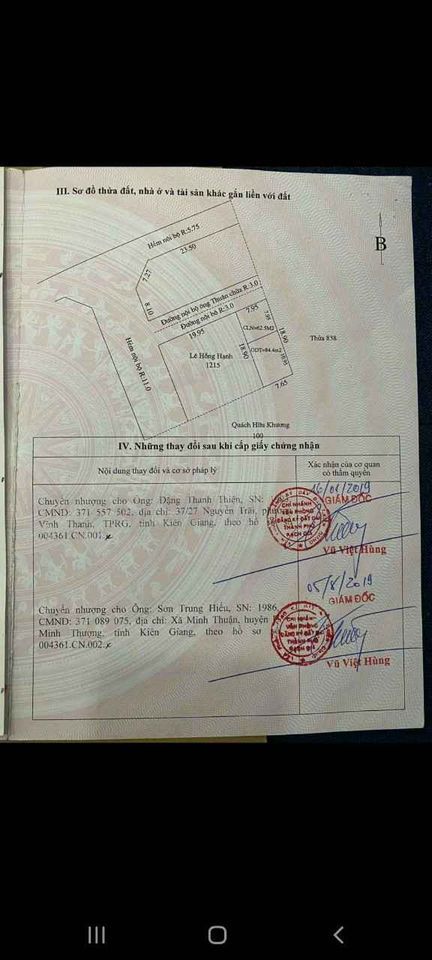 III. Sơ đồ thửa đất, nhà ở và tài sản khác gắn liền với đất
B
Hẻm nội bộ R:5.75
23.50
7.27
8.10
Đường nội bộ ông Thuân chừa R:3.0
Đường nội bộ R:3.0
Hẻm nội bộ R:11.0
19.95
7.95
Lê Hồng Hạnh
1215
18.90
CLNv62.5M2
ODTv84.4m2
18.90
Thửa 838
7.65
Quách Hữu Khương
100
IV. Những thay đổi sau khi cấp giấy chứng nhận
Nội dung thay đổi và cơ sở pháp lý
Xác nhận của cơ quan
có thẩm quyền
Chuyển nhượng cho Ông: Đặng Thanh Thiện, SN:
CMND: 371 557 502, địa chỉ: 37/27 Nguyễn Trãi,
Vĩnh Thanh, TPRG, tỉnh Kiên Giang, theo hồ
004361.CN.001.
GIÁM ĐỐC
CHI NHÁNH
VĂN PHÒNG
ĐĂNG KÝ ĐẤT ĐAI
THÀNH PHỐ
RẠCH GIÁ
Vũ Việt Hùng
05/8/2019
Chuyển nhượng cho Ông: Sơn Trung Hiếu, SN: 1986,
CMND: 371 089 075, địa chỉ: Xã Minh Thuận, huyện
Minh Thượng, tỉnh Kiên Giang, theo hồ sơ
004361.CN.002.
GIÁM ĐỐC
CHI NHÁNH
VĂN PHÒNG
ĐĂNG KÝ ĐẤT ĐAI
THÀNH PHỐ
RẠCH GIÁ
Vũ Việt Hùng